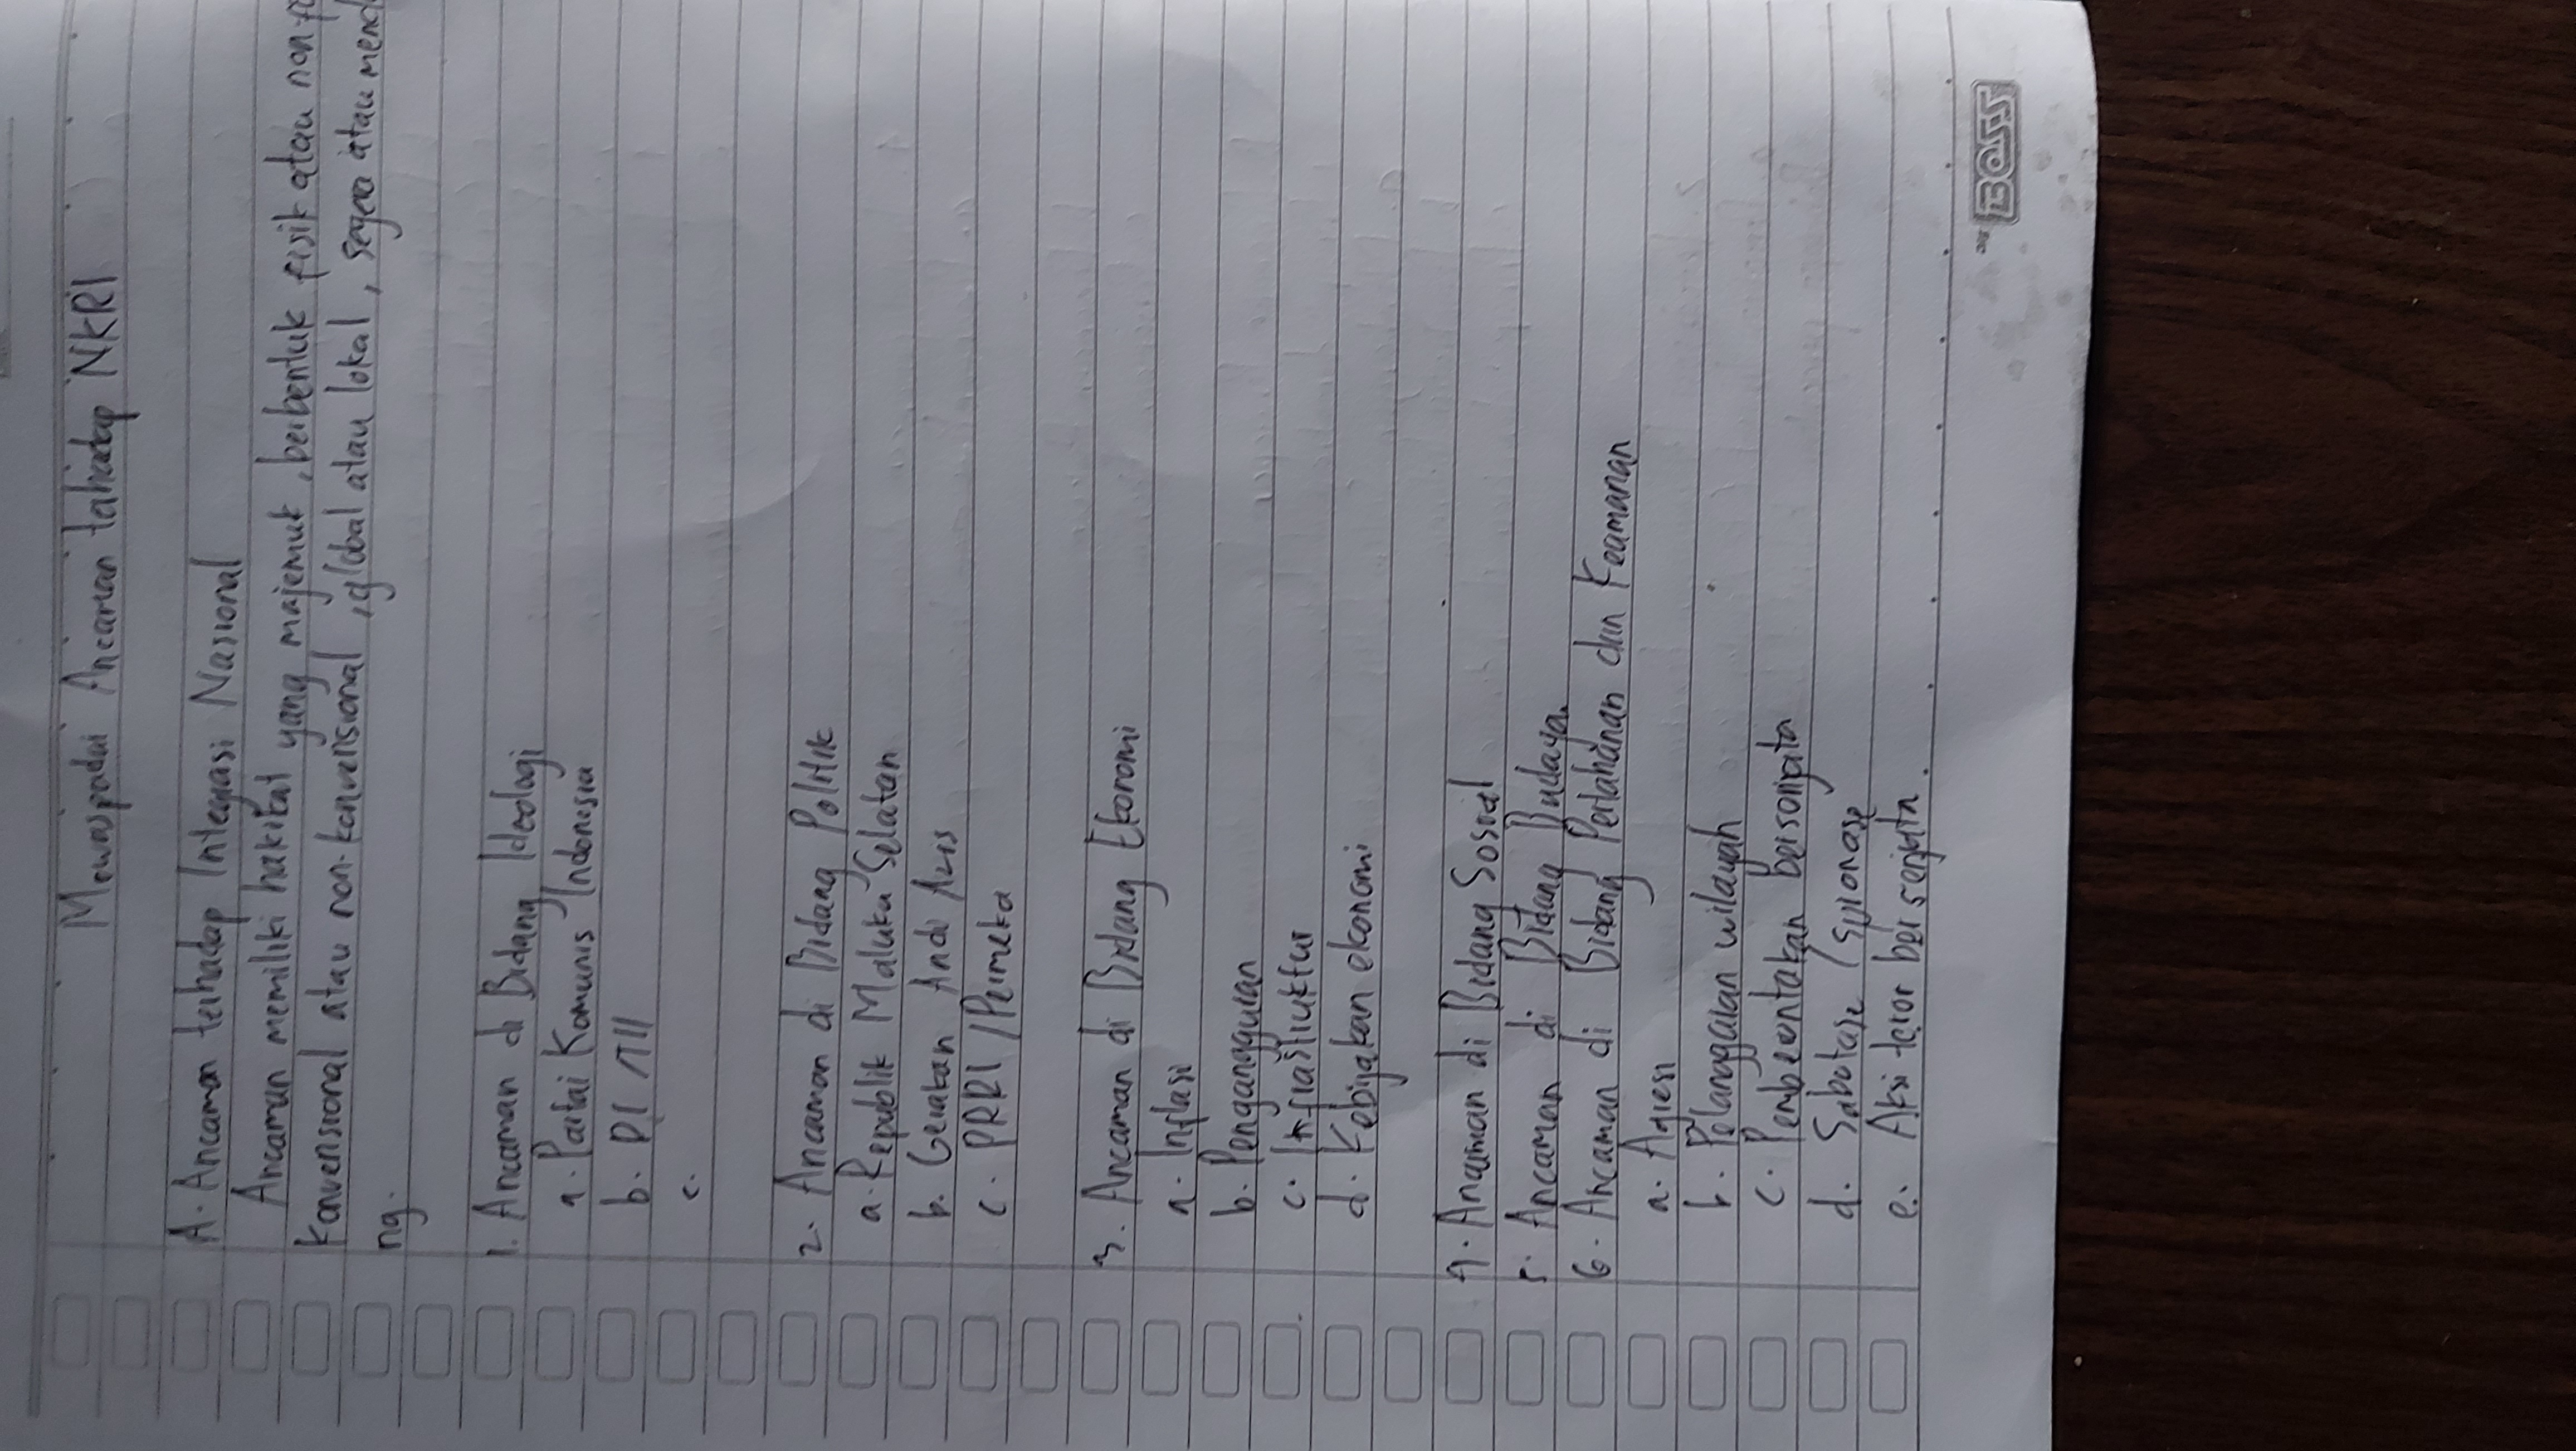 Mewaspadai Ancaman terhadap NKRI
A. Ancaman terhadap Integrasi Nasional
Ancaman memiliki hakikat yang majemuk, berbentuk fisik atau non-fi
konvensional atau non-konvensional, global atau lokal, segera atau mend
ng.
1. Ancaman di Bidang Ideologi
a. Partai Komunis Indonesia
b. DI /TII
c.
2. Ancaman di Bidang Politik
a. Republik Maluku Selatan
b. Gerakan Andi Azis
c. PRRI /Permeta
3. Ancaman di Bidang Ekonomi
a. Inflasi
b. Pengangguran
c. Infrastruktur
d. Kebijakan ekonomi
4. Ancaman di Bidang Sosial
5. Ancaman di Bidang Budaya.
6. Ancaman di Bidang Pertahanan dan Keamanan
a. Agresi
b. Pelanggaran wilayah
c. Pemberontakan bersenjata
d. Sabotase / spionase
e. Aksi teror bersenjata.
BOSS